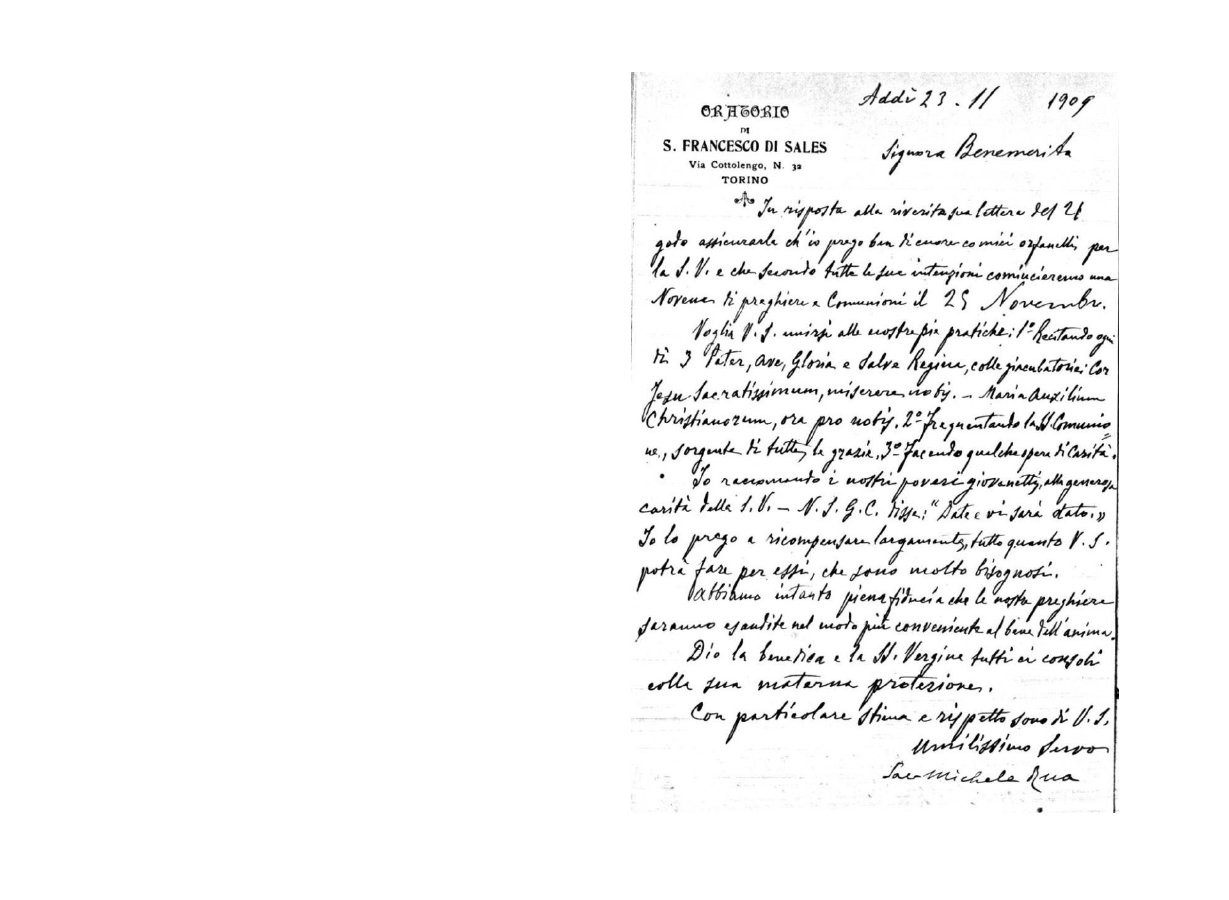 ORATORIO
DI
S. FRANCESCO DI SALES
Via Cottolengo, N. 32
TORINO
Addì 23 . 11 1909
Signora Benemerita
In risposta alla riverita sua lettera del 21
godo assicurarla ch'io prego ben di cuore co miei orfanelli per
la S. V. e che secondo tutte le sue intenzioni cominceremo una
Novena di preghiere e Comunioni il 25 Novembr.
Voglia V. S. unirsi alle nostre pie pratiche: 1º Recitando ogni
dì 3 Pater, Ave, Gloria e Salve Regina, colle giaculatorie: Cor
Jesu Sacratissimum, miserere nobis. - Maria Auxilium
Christianorum, ora pro nobis. 2º Frequentando la SS. Comunio=
ne, sorgente di tutte le grazie, 3º Facendo qualche opera di Carità.
Io raccomando i nostri poveri giovanetti, alla generosa
carità della S. V. - N. S. G. C. disse: "Date e vi sarà dato."
Io lo prego a ricompensare largamente, tutto quanto V. S.
potrà fare per essi, che sono molto bisognosi.
Abbiamo intanto piena fiducia che le nostre preghiere
saranno esaudite nel modo più conveniente al bene dell'anima.
Dio la benedica e la SS. Vergine tutti ci consoli
colla sua materna protezione.
Con particolare stima e rispetto sono di V. S.
Umilissimo Servo
Sac Michele Rua